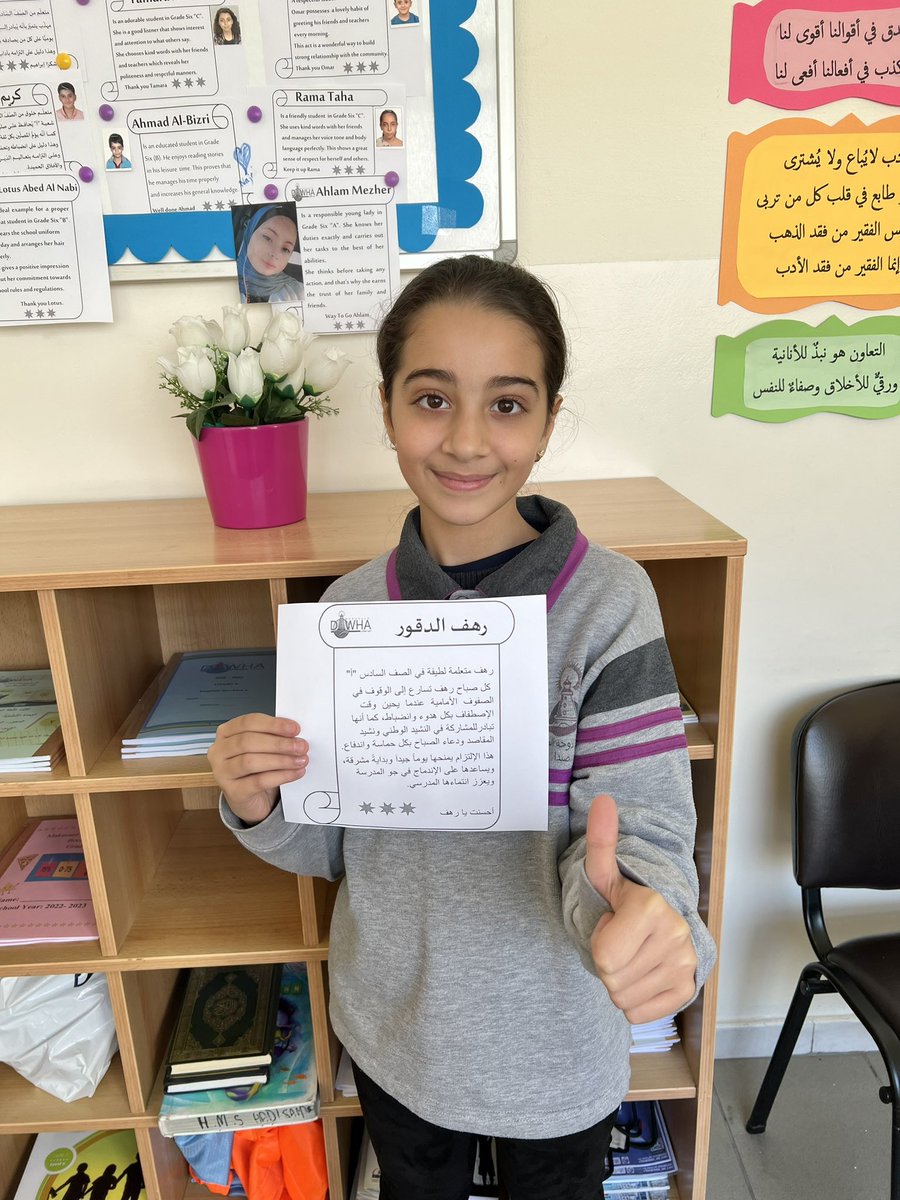 Is adorable student in Grade Six "C".
She is a good listner that shows interest
and attention to what others say.
She chooses kind words with her friends
and teachers which reveals her
politeness and respctful manners.
Thank you Tamara
Omar possesses a lovely habit of
greeting his friends and teachers
every morning.
This act is a wonderful way to build
strong relationship with the community.
Thank you Omar
كريم
Ahmad Al-Bizri
Is an educated student in Grade
Six (B). He enjoys reading stories
in his leisure time. This proves that
he manages his time properly
and increases his general knowledge.
Well done Ahmad
Rama Taha
Is a friendly student in Grade Six "C".
She uses kind words with her friends
and manages her voice tone and body
language perfectly. This shows a great
sense of respect for herself and others.
Keep it up Rama
Lotus Abed Al Nabi
deal example for a proper
student in Grade Six "B".
ears the school uniform
day and arranges her hair
gives a positive impression
ut her commitment towards
ool rules and regulations.
Thank you Lotus.
DAWHA Ahlam Mezher
Is a responsible young lady in
Grade Six "A". She knows her
duties exactly and carries out
her tasks to the best of her
abilities.
She thinks before taking any
action, and that's why she earns
the trust of her family and
friends.
Way To Go Ahlam.
دق في أقوالنا أقوى لنا
كذب في أفعالنا أفعى لنا
دب لايُباع ولا يُشترى
طابع في قلب كل من تربى
س الفقير من فقد الذهب
إنما الفقير من فقد الأدب
التعاون هو نبذٌ للأنانية
ورقيٌّ للأخلاق وصفاءٌ للنفس
DAWHA
رهف الدقور
رهف متعلمة لطيفة في الصف السادس "أ"
كل صباح رهف تسارع إلى الوقوف في
الصفوف الأمامية عندما يحين وقت
الإصطفاف بكل هدوء وانضباط، كما أنها
تبادر للمشاركة في النشيد الوطني ونشيد
المقاصد ودعاء الصباح بكل حماسة واندفاع.
هذا الإلتزام يمنحها يوما جيدا وبداية مشرقة،
ويساعدها على الإندماج في جو المدرسة
ويعزز انتماءها المدرسي.
أحسنت يا رهف
DAWHA
School Year: 2022- 2023
H.M.S